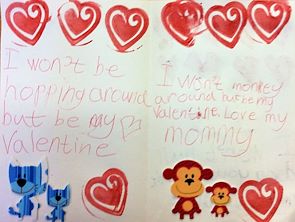 I won't be
hopping around
but be my
Valentine
I won't monkey
around but be my
Valentine. Love my
mommy